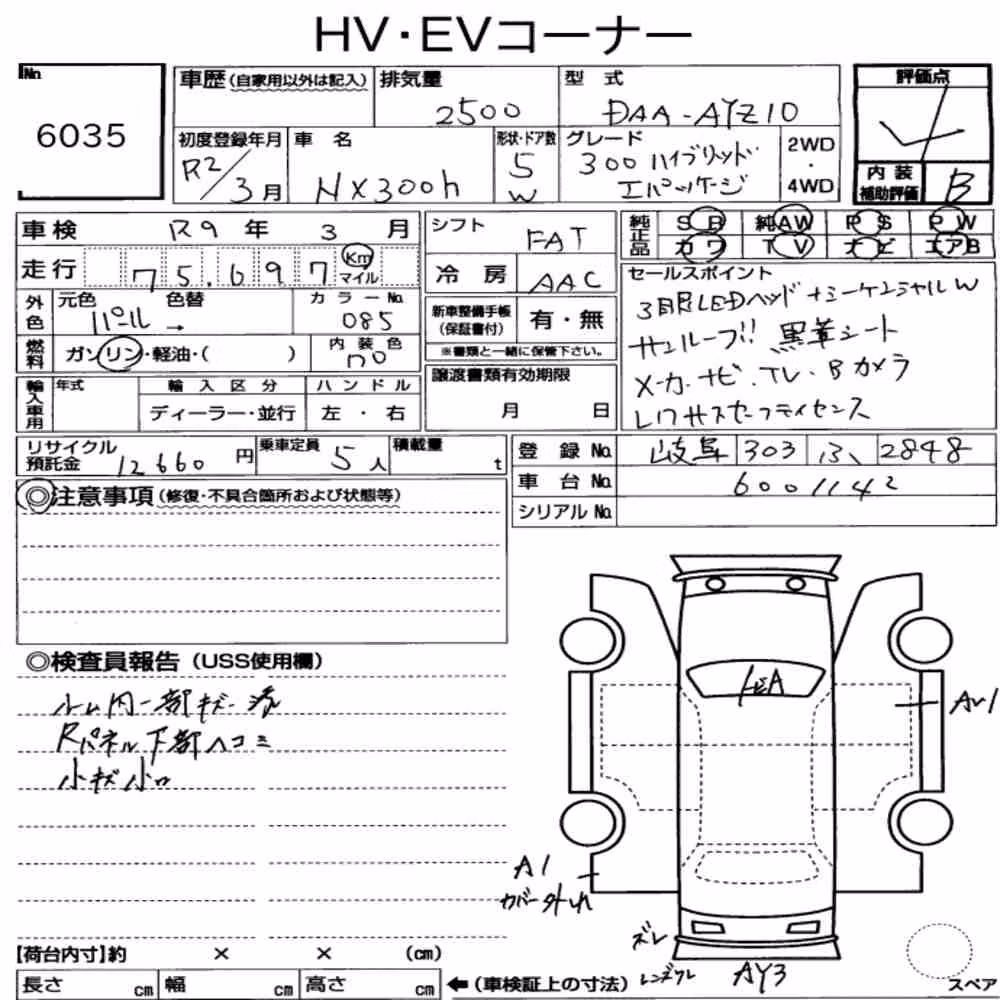 HV・EVコーナー
No.
6035
車歴(自家用以外は記入)
排気量
2500
型 式
DAA-AYZ10
評価点
初度登録年月
R2/3月
車 名
NX300h
形状・ドア数
5
W
グレード
300ハイブリッド
Iパッケージ
2WD
・
4WD
内装
補助評価
B
車検
R9 年 3 月
走行
75,697
Km
マイル
外色
元色
パール→
色替
カラーNo.
085
燃料
ガソリン・軽油・( )
内装色
輸入車用
年式
輸入区分
ディーラー・並行
ハンドル
左・右
シフト
FAT
冷房
AAC
新車整備手帳
(保証書付)
有・無
※書類と一緒に保管下さい。
譲渡書類有効期限
月 日
純正品
SR 純AW PS PW
カワ TV ナビ エアB
セールスポイント
3眼LEDヘッド+シーケンシャルW
サンルーフ!! 黒革シート
メーカーナビ.TV.Bカメラ
レクサスセーフティセンス
リサイクル
預託金
12660 円
乗車定員
5人
積載量
t
登録No.
岐阜 303 2848
車台No.
6001142
シリアルNo.
◎注意事項(修復・不具合箇所および状態等)
◎検査員報告(USS使用欄)
ルーム内一部キズ
Rパネル下部ヘコミ
小キズ小凹
トビA
AU1
A1
カバー外れ
ズレ
レンズワレ
AY3
スペア
【荷台内寸】約 × × (cm)
長さ cm 幅 cm 高さ cm ←(車検証上の寸法)